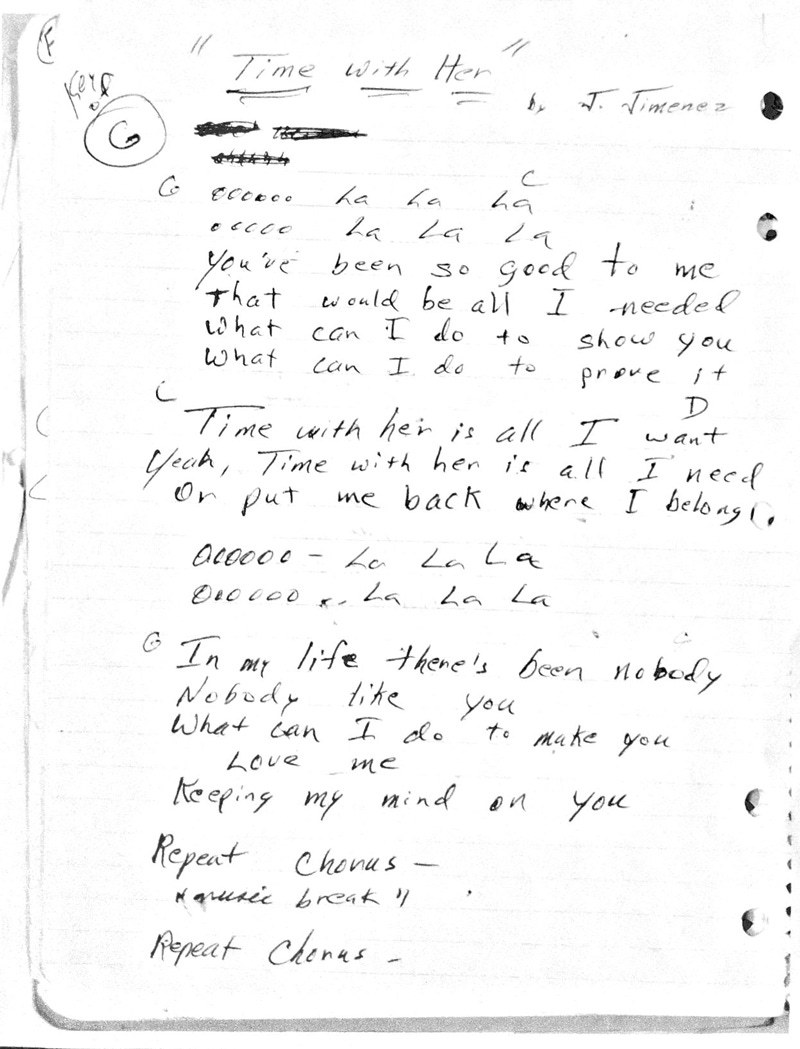 F
" Time with Her "
by J. Jimenez
Key of
G
G oooooo La La La C
ooooo La La La
You've been so good to me
That would be all I needed
What can I do to show you
What can I do to prove it
C D
Time with her is all I want
Yeah, Time with her is all I need
Or put me back where I belong.
oooooo - La La La
oooooo .. La La La
G C
In my life there's been nobody
Nobody like you
What can I do to make you
Love me
Keeping my mind on you
Repeat Chorus -
"music break"
Repeat Chorus -